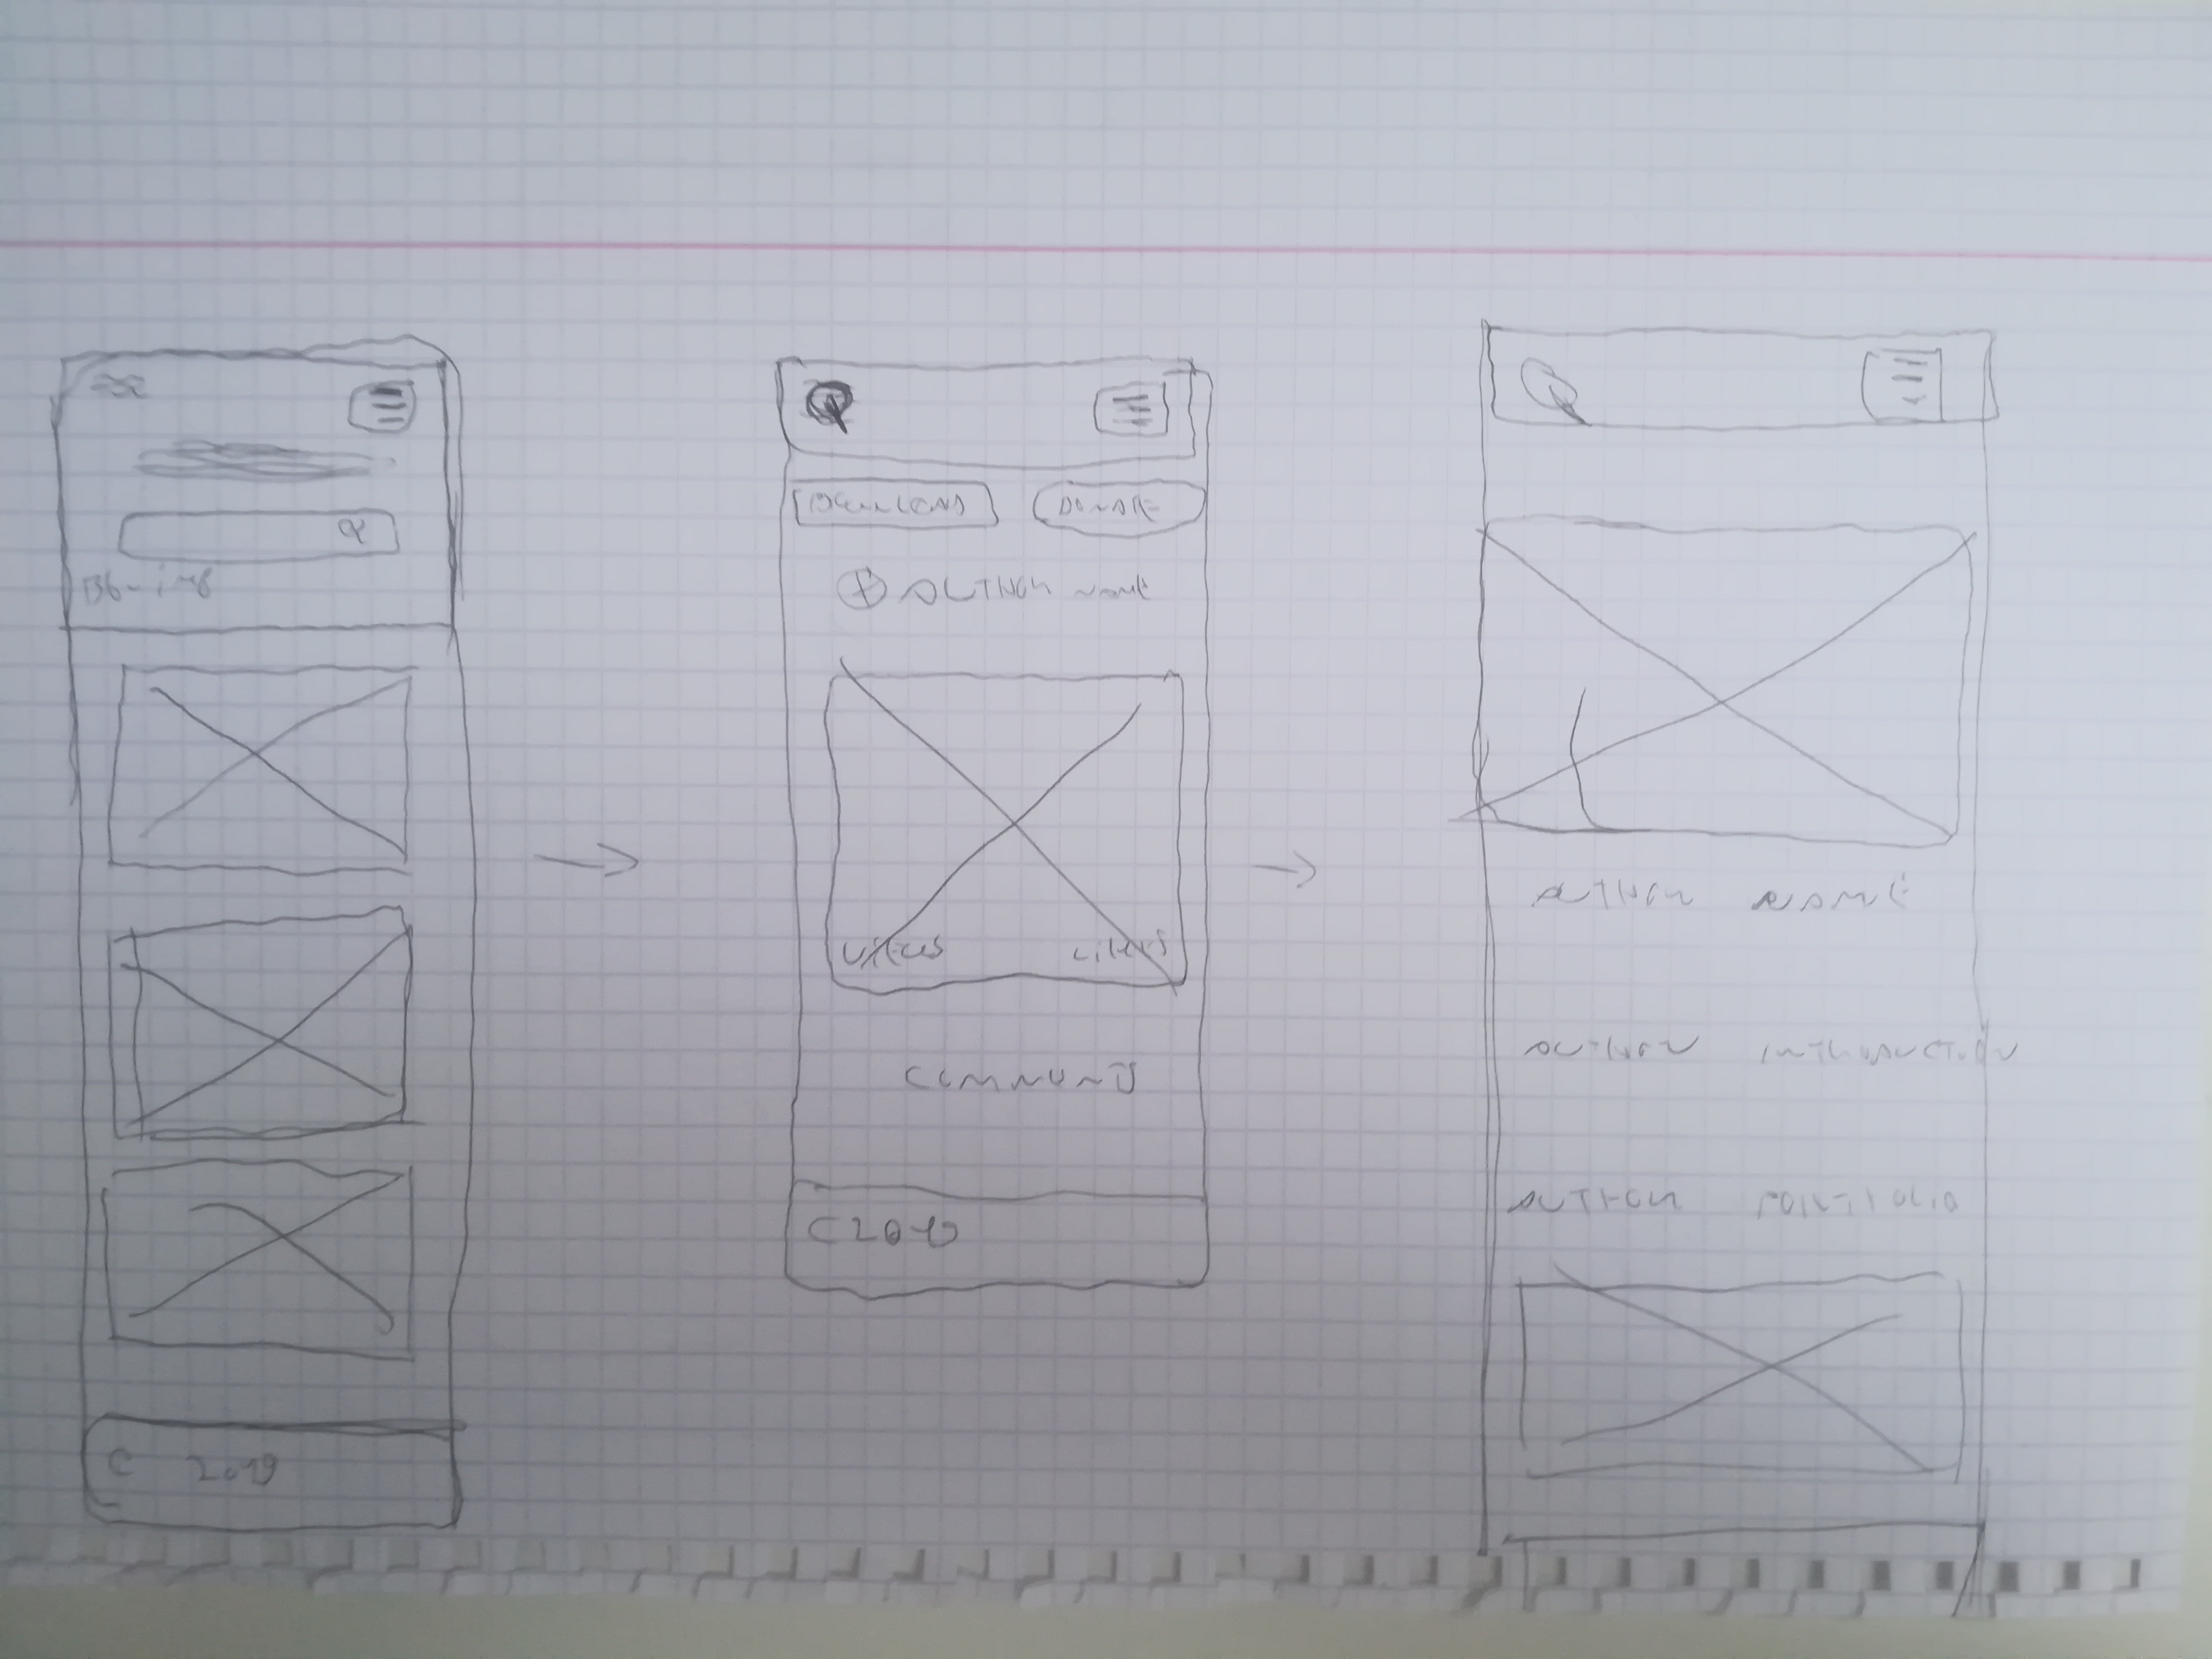 C 2019
DOWNLOAD
DONATE
AUTHOR NAME
VIEWS
LIKES
COMMENTS
AUTHOR NAME
AUTHOR INTRODUCTION
AUTHOR PORTFOLIO